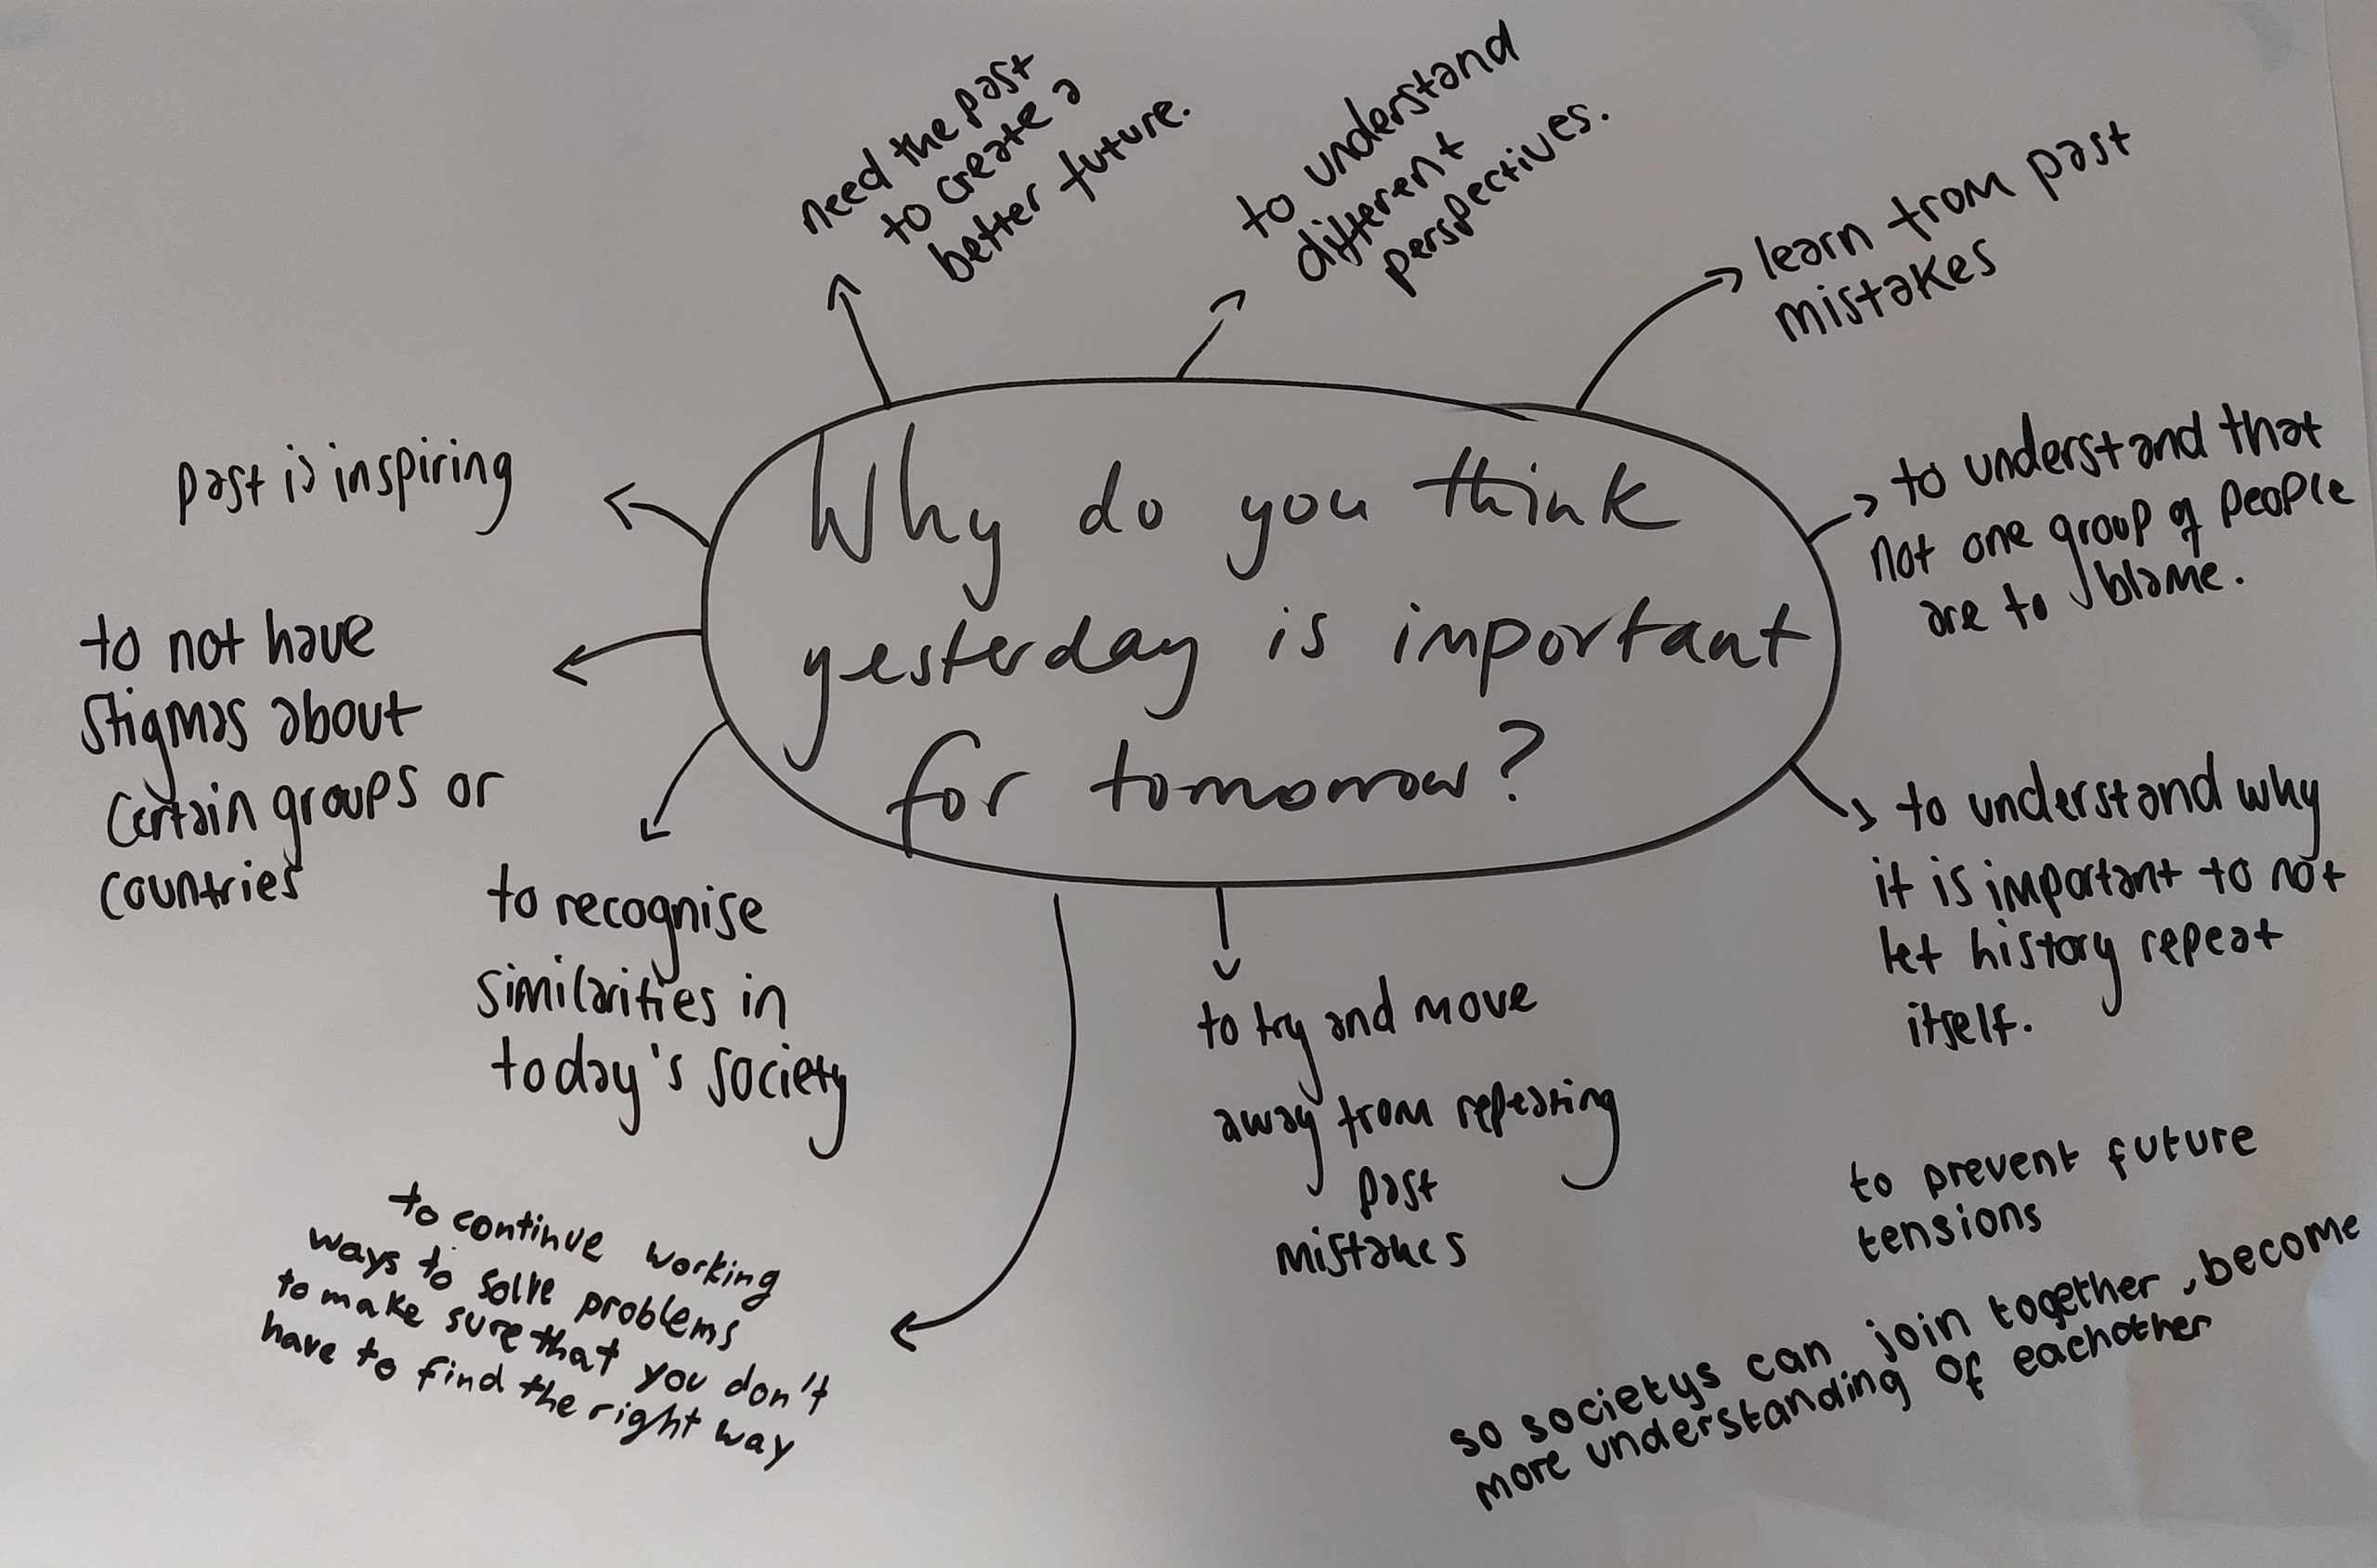 Why do you think
yesterday is important
for tomorrow?
need the past
to create a
better future.
to understand
different
perspectives.
learn from past
mistakes
to understand that
not one group of people
are to blame.
to understand why
it is important to not
let history repeat
itself.
to prevent future
tensions
so societys can join together, become
more understanding of eachother
to try and move
away from repeating
past
mistakes
to continue working
ways to solve problems
to make sure that you don't
have to find the right way
to recognise
similarities in
today's society
to not have
stigmas about
certain groups or
countries
past is inspiring